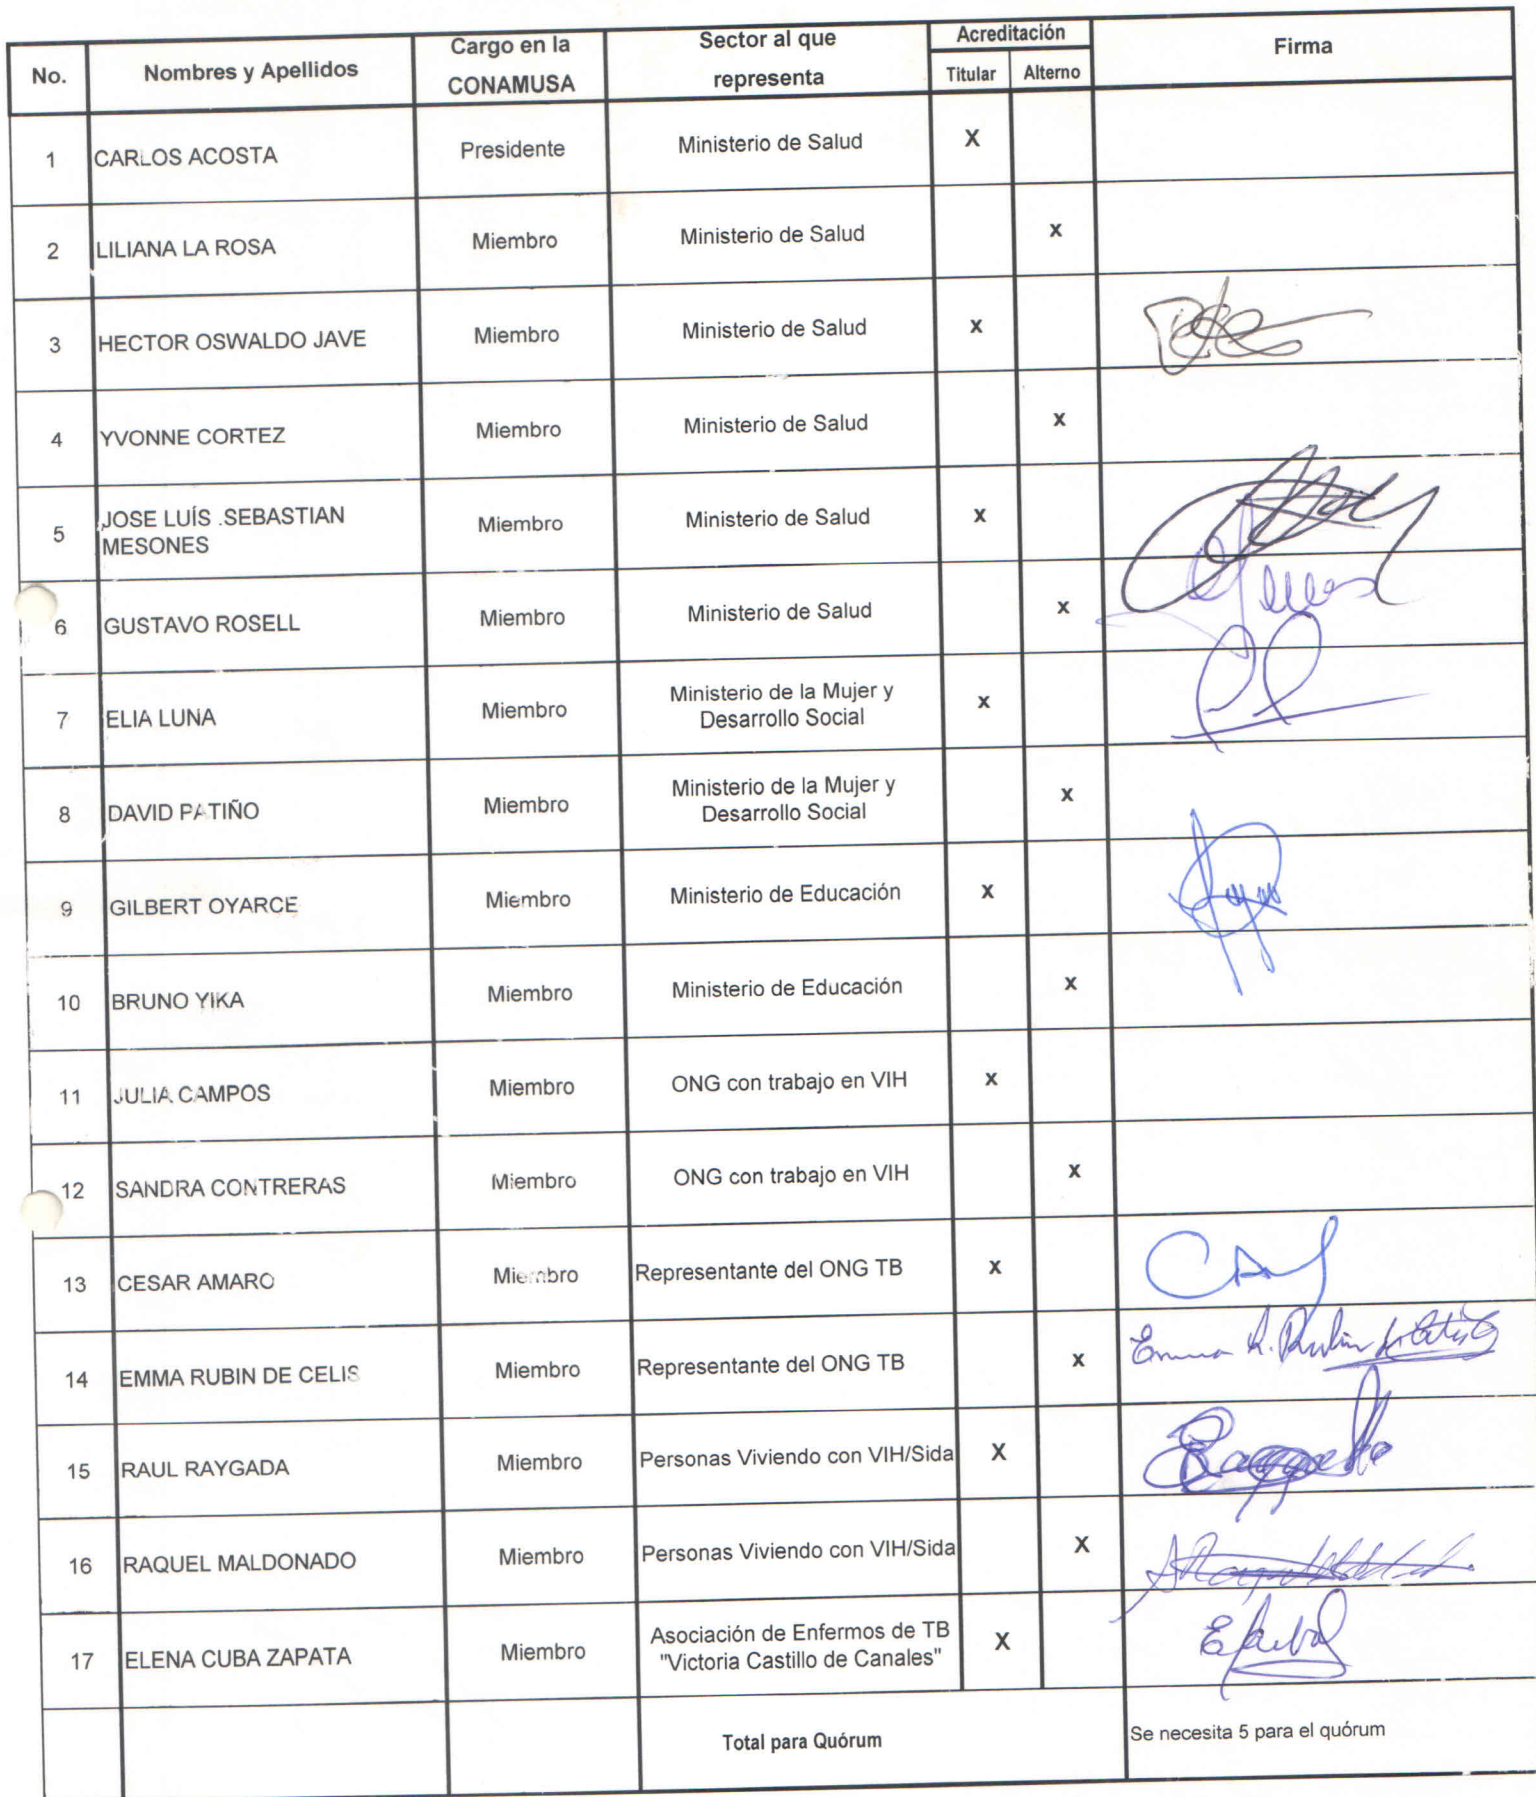 No. Nombres y Apellidos Cargo en la CONAMUSA Sector al que representa Acreditación Titular Alterno Firma
1 CARLOS ACOSTA Presidente Ministerio de Salud X
2 LILIANA LA ROSA Miembro Ministerio de Salud x
3 HECTOR OSWALDO JAVE Miembro Ministerio de Salud x
4 YVONNE CORTEZ Miembro Ministerio de Salud x
5 JOSE LUÍS .SEBASTIAN MESONES Miembro Ministerio de Salud x
6 GUSTAVO ROSELL Miembro Ministerio de Salud x
7 ELIA LUNA Miembro Ministerio de la Mujer y Desarrollo Social x
8 DAVID PATIÑO Miembro Ministerio de la Mujer y Desarrollo Social x
9 GILBERT OYARCE Miembro Ministerio de Educación x
10 BRUNO YIKA Miembro Ministerio de Educación x
11 JULIA CAMPOS Miembro ONG con trabajo en VIH x
12 SANDRA CONTRERAS Miembro ONG con trabajo en VIH x
13 CESAR AMARO Miembro Representante del ONG TB x
14 EMMA RUBIN DE CELIS Miembro Representante del ONG TB x Emma R. Rubin de Celis
15 RAUL RAYGADA Miembro Personas Viviendo con VIH/Sida X
16 RAQUEL MALDONADO Miembro Personas Viviendo con VIH/Sida X
17 ELENA CUBA ZAPATA Miembro Asociación de Enfermos de TB "Victoria Castillo de Canales" X
Total para Quórum Se necesita 5 para el quórum